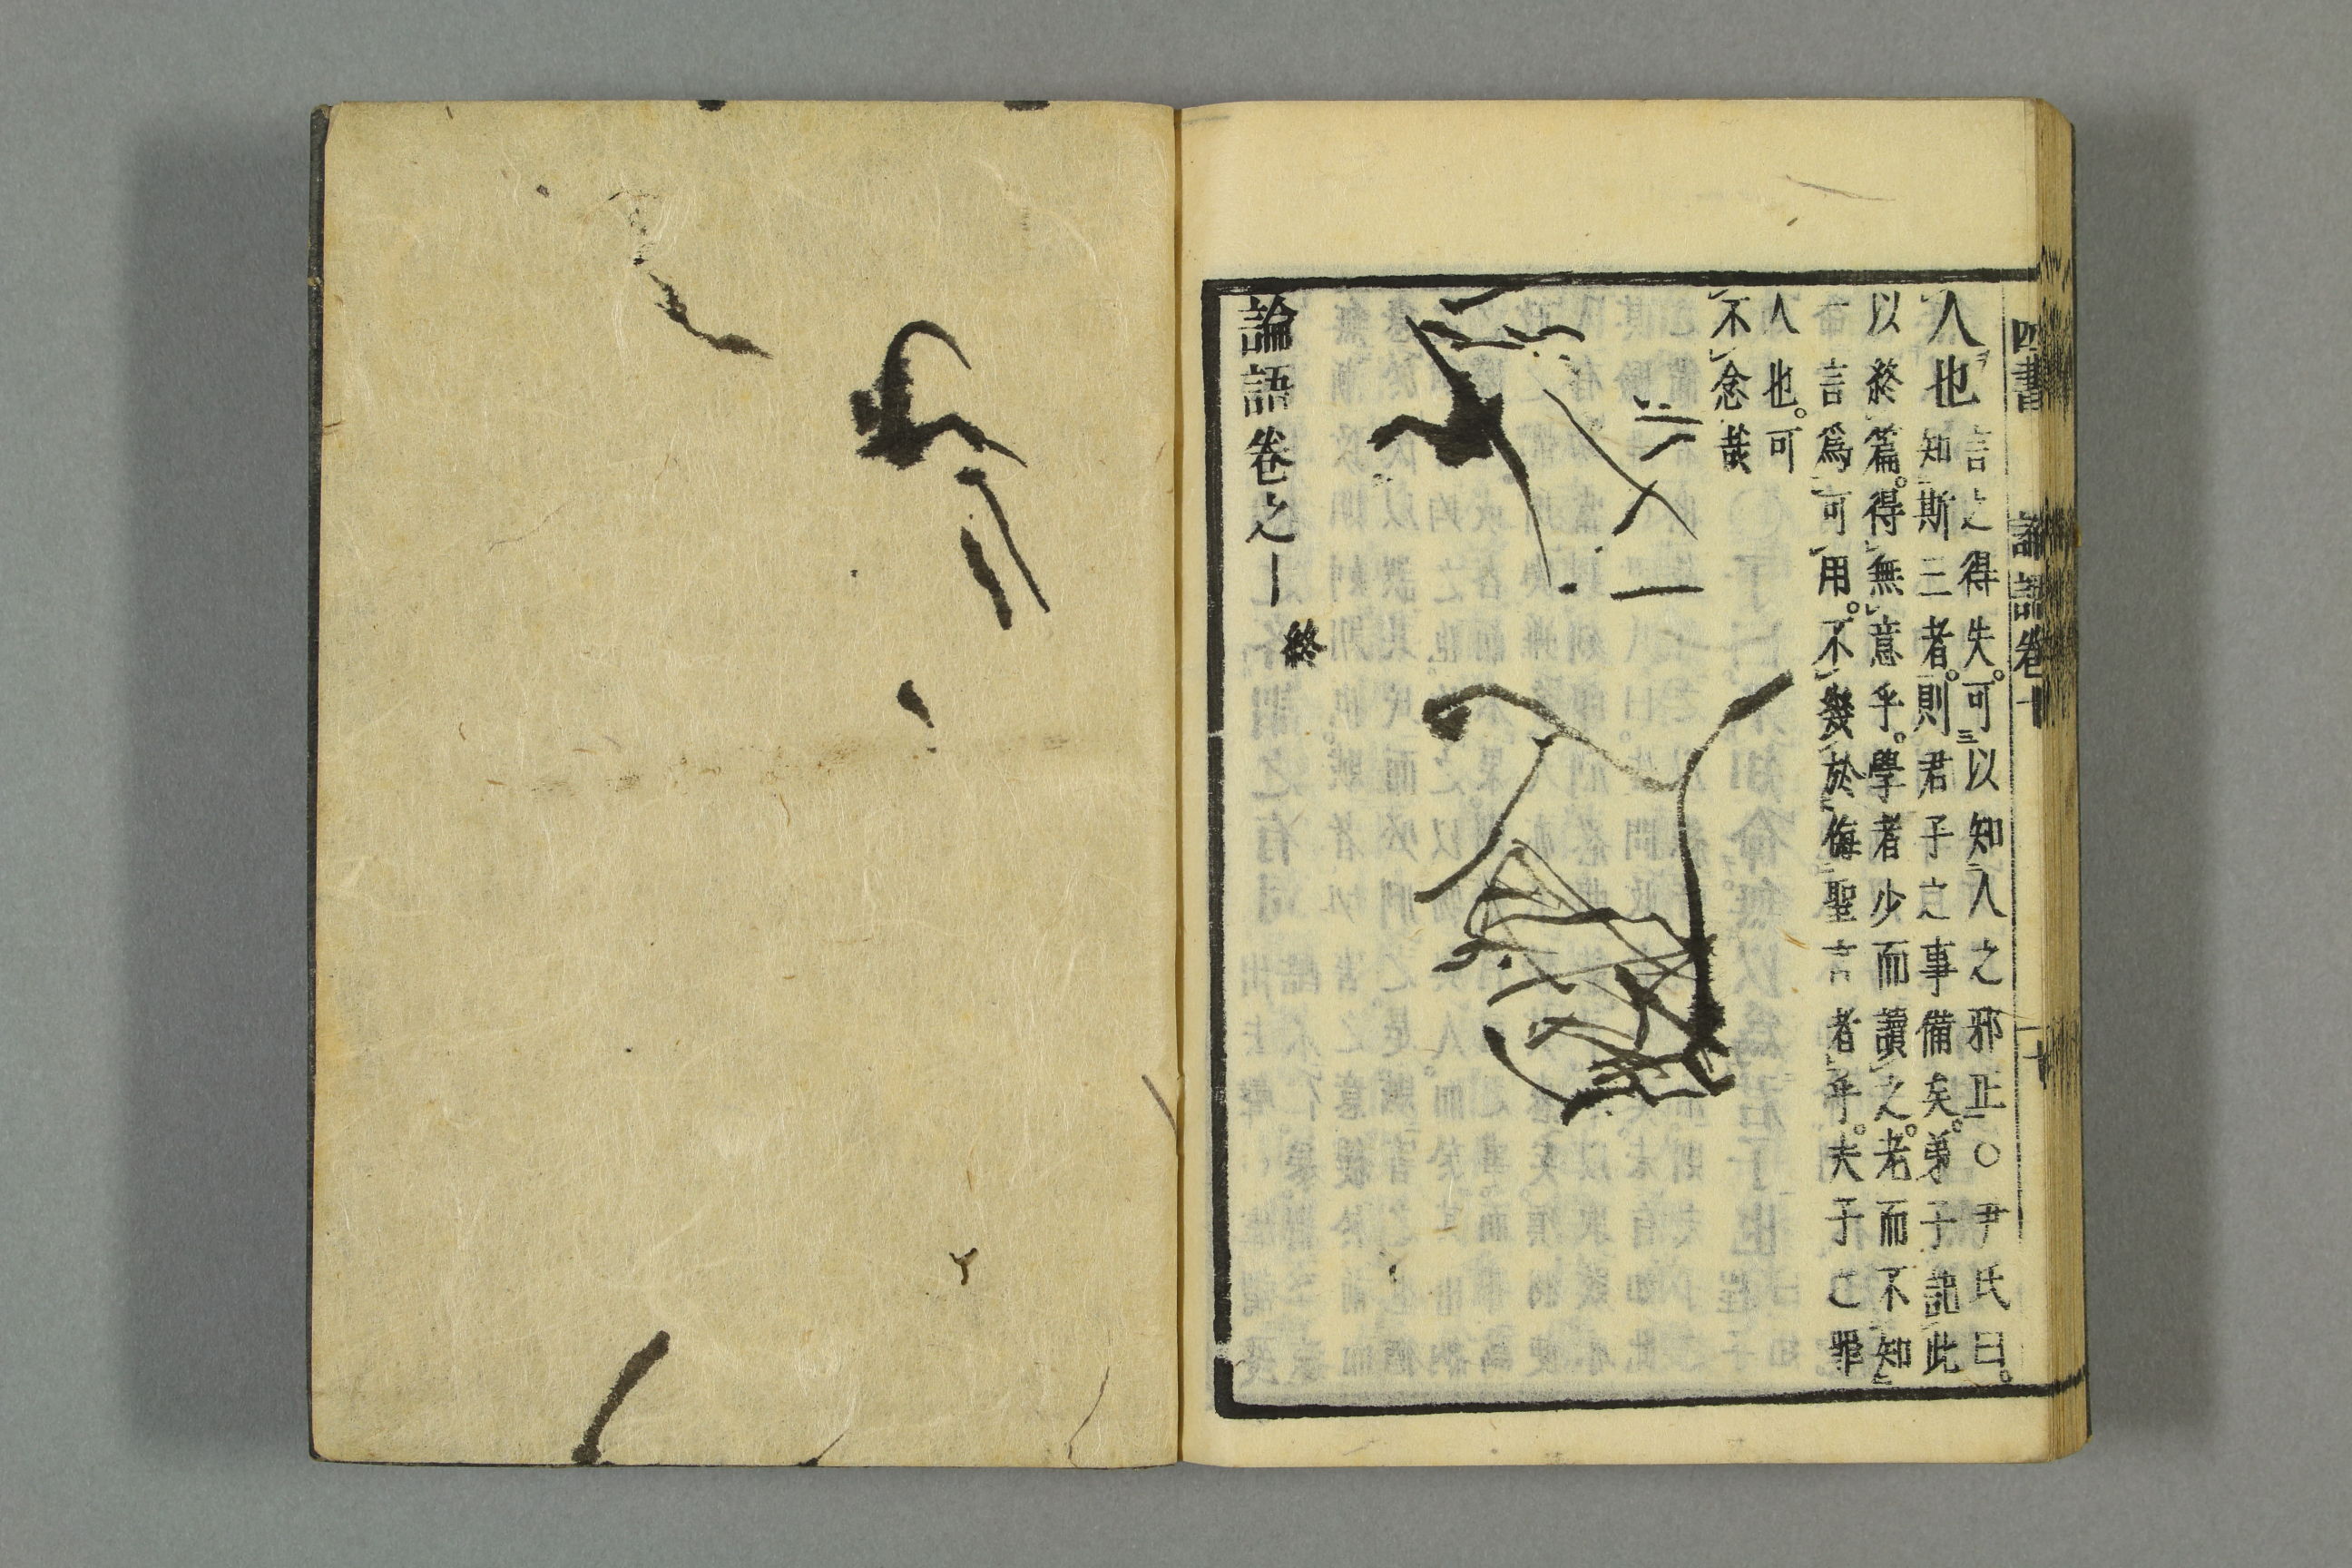 四書 論語卷十 二十
人也言之得失。可以知人之邪正○尹氏曰。
知斯三者。則君子之事備矣。弟子記此
以終篇。得無意乎。學者少而讀之。老而不知
一言爲可用。不幾於侮聖言者乎。夫子之罪
人也。可
不念哉
論語卷之十 終